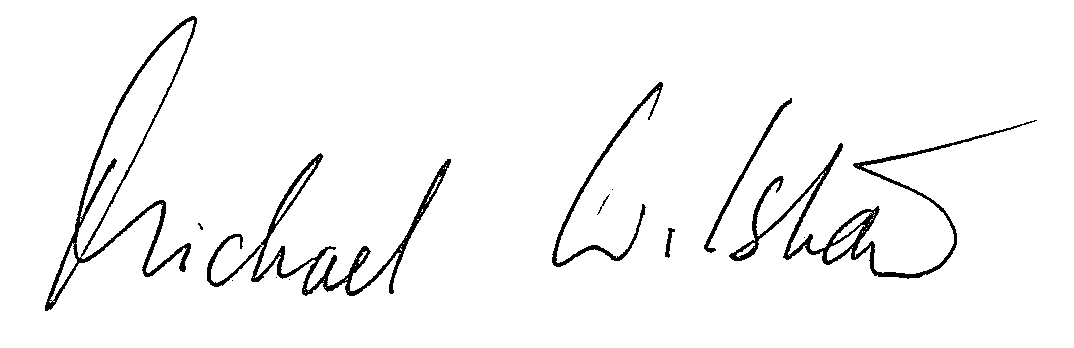 Michael Wilshaw